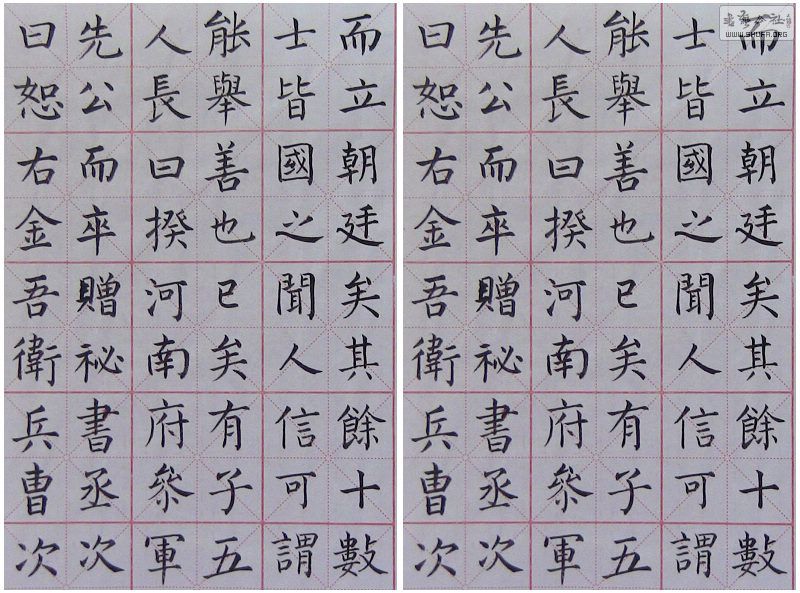 而立朝廷矣其餘十數
士皆國之聞人信可謂
能舉善也已矣有子五
人長曰揆河南府叅軍
先公而卒贈祕書丞次
曰恕右金吾衛兵曹次
而立朝廷矣其餘十數
士皆國之聞人信可謂
能舉善也已矣有子五
人長曰揆河南府叅軍
先公而卒贈祕書丞次
曰恕右金吾衛兵曹次
WWW.SHUFA.ORG